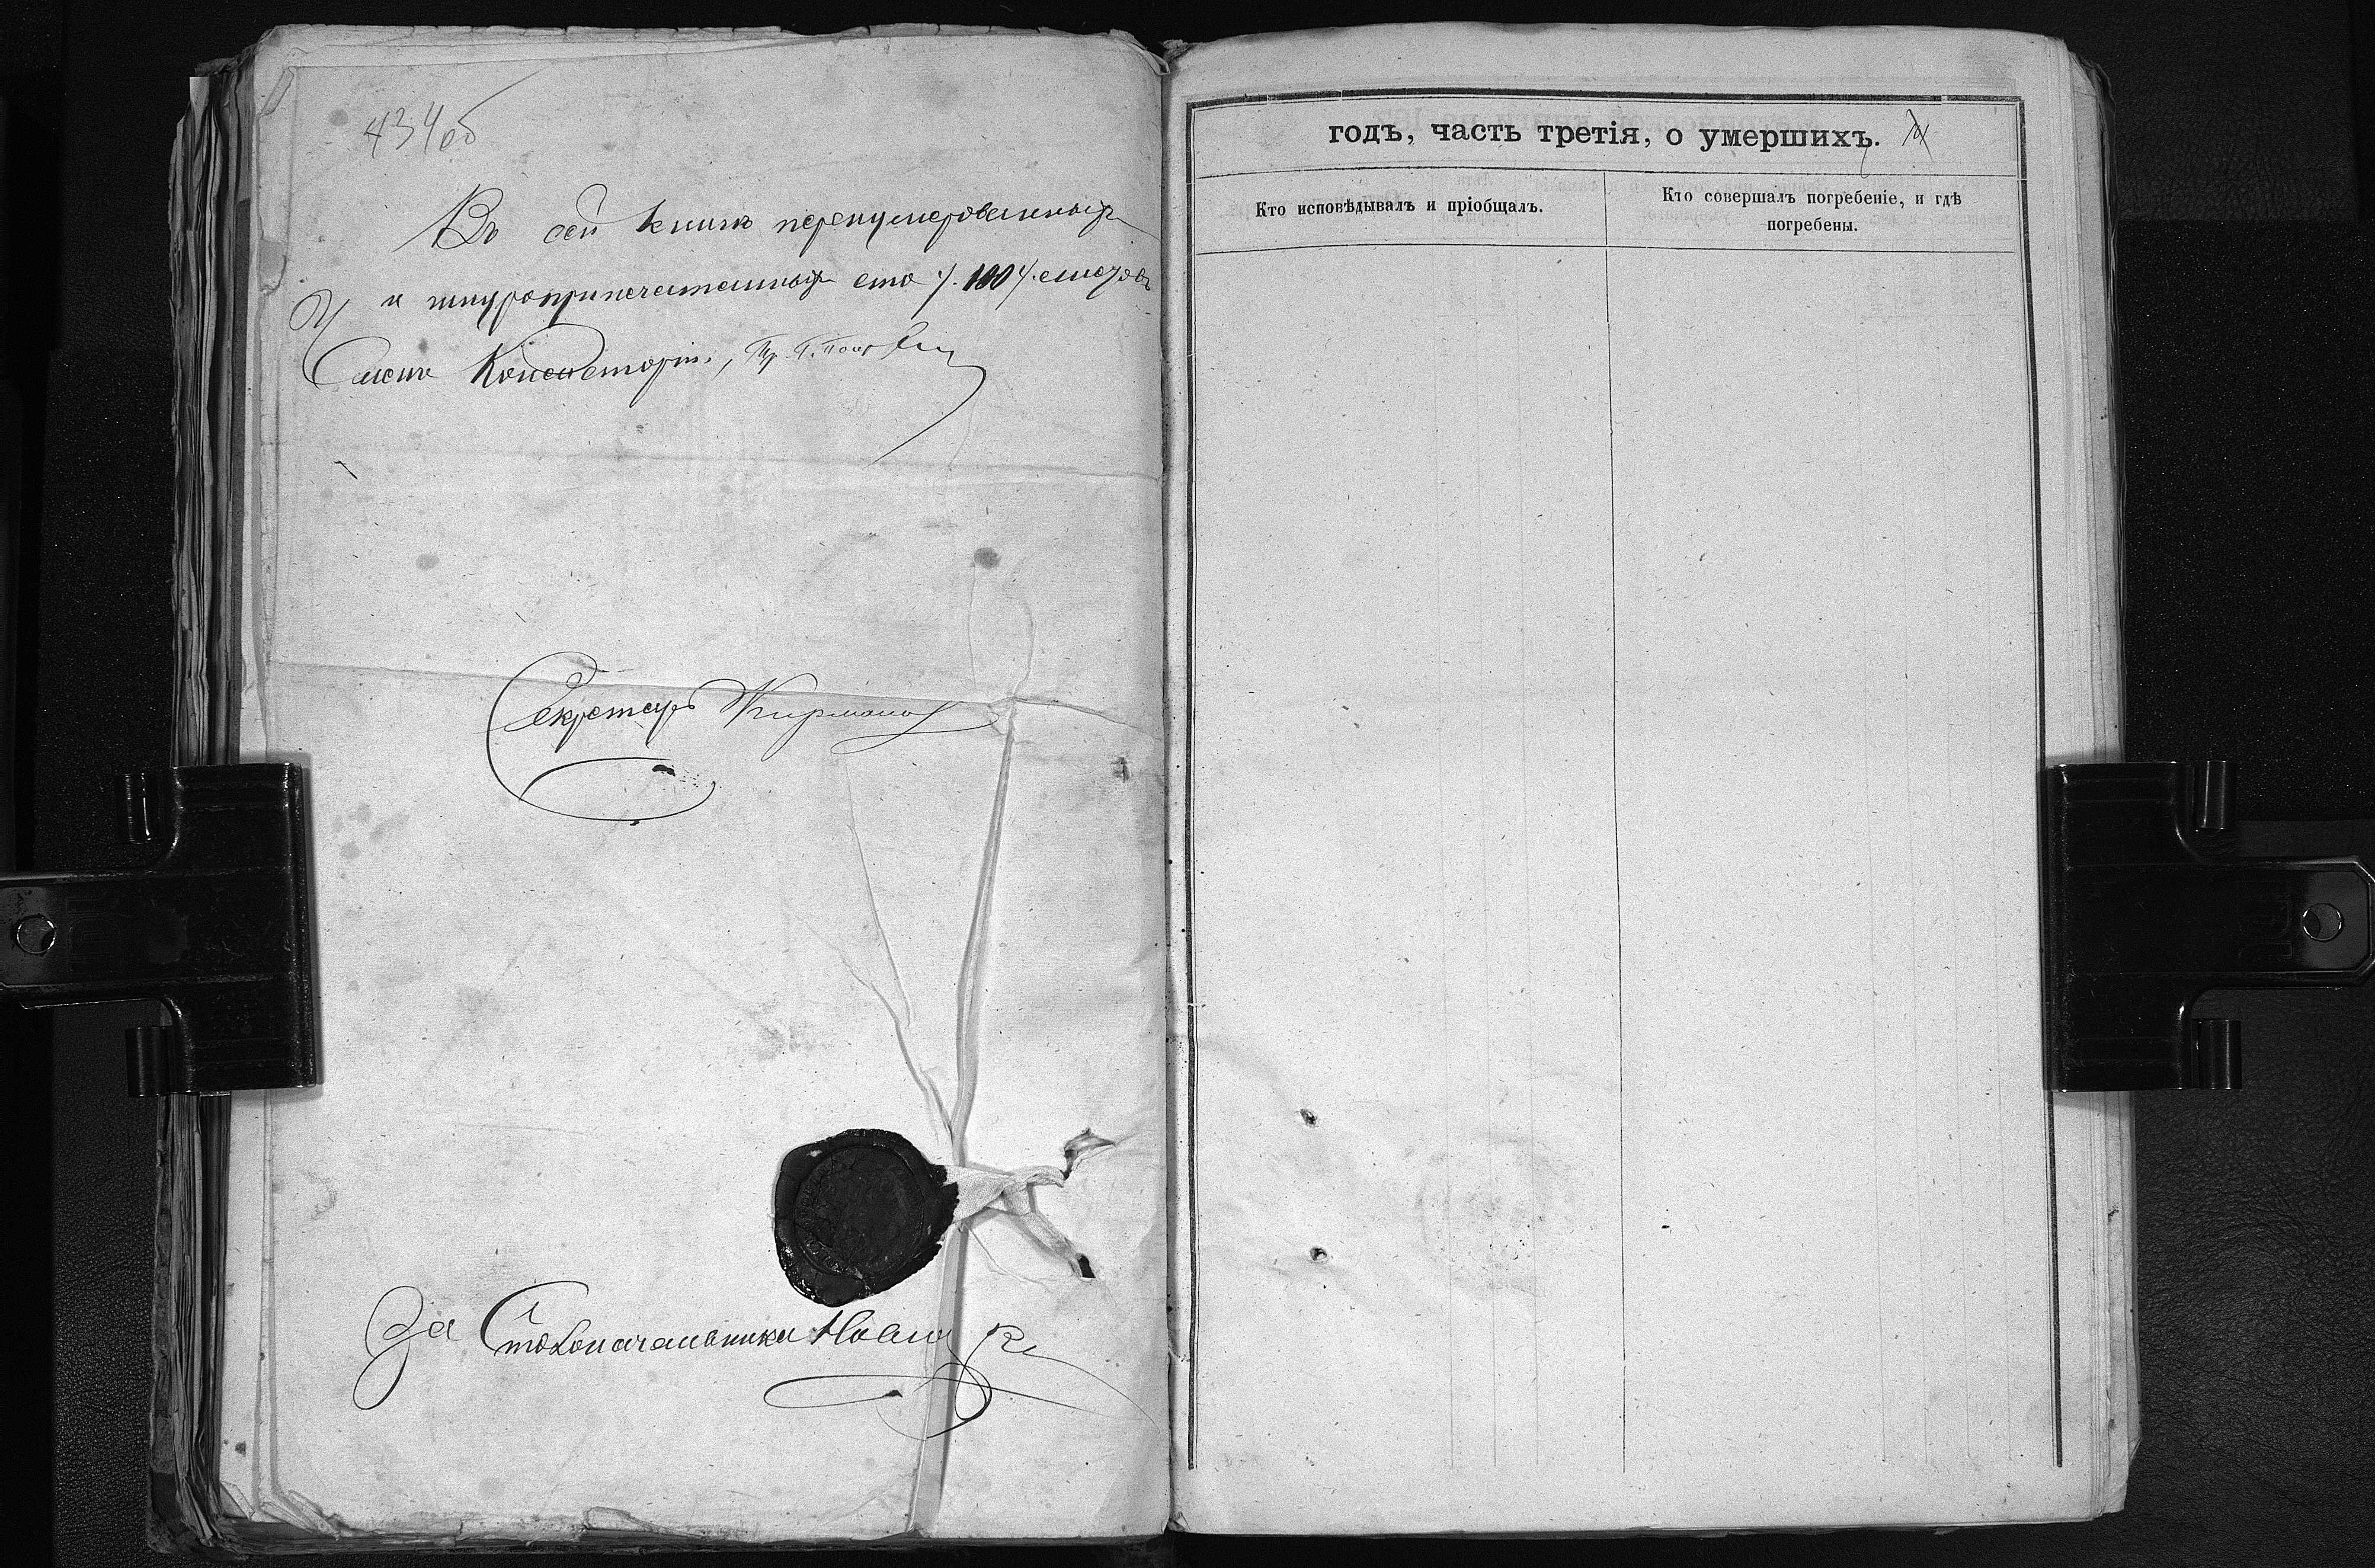 434об
Въ сей книгѣ перенумерованныхъ
и шнуроприпечатанныхъ сто /. 100 /. листовъ
Членъ Консисторіи,
Секретарь
За Столоначальника
годъ, часть третія, о умершихъ.
Кто исповѣдывалъ и пріобщалъ.
Кто совершалъ погребеніе, и гдѣ
погребены.